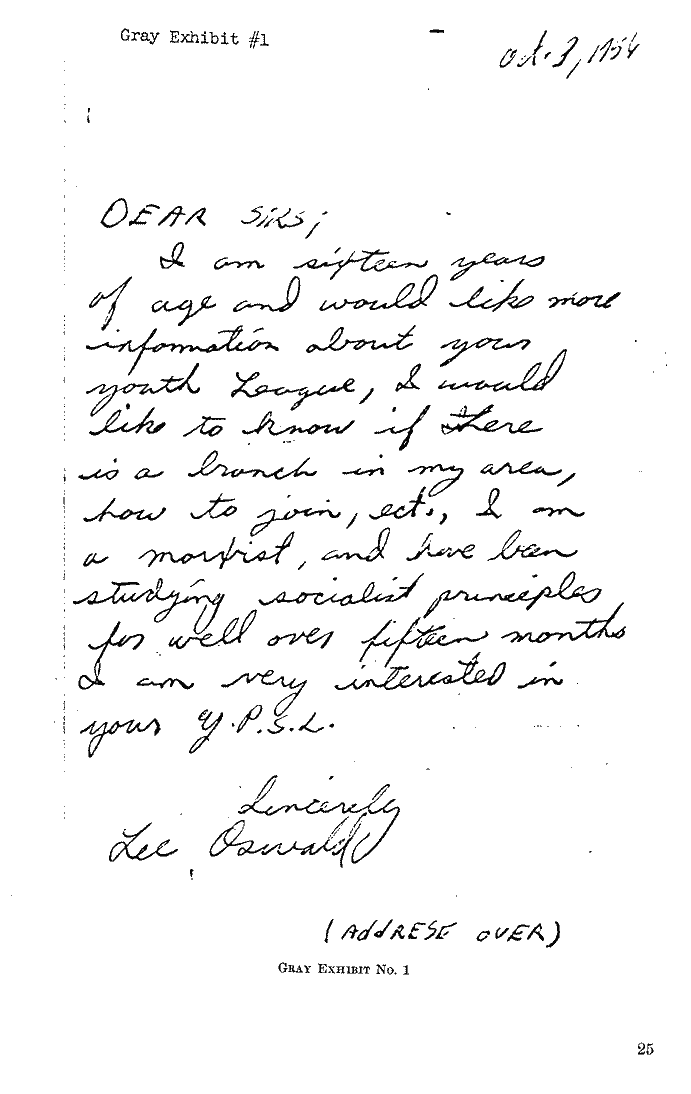 Gray Exhibit #1
Oct. 3, 1956
DEAR SIRS;
I am sixteen years
of age and would like more
information about your
youth League, I would
like to know if there
is a branch in my area,
how to join, ect., I am
a marxist, and have been
studying socialist principles
for well over fifteen months
I am very interested in
your Y.P.S.L.
Sincerely
Lee Oswald
(ADDRESE OVER)
GRAY EXHIBIT No. 1
25